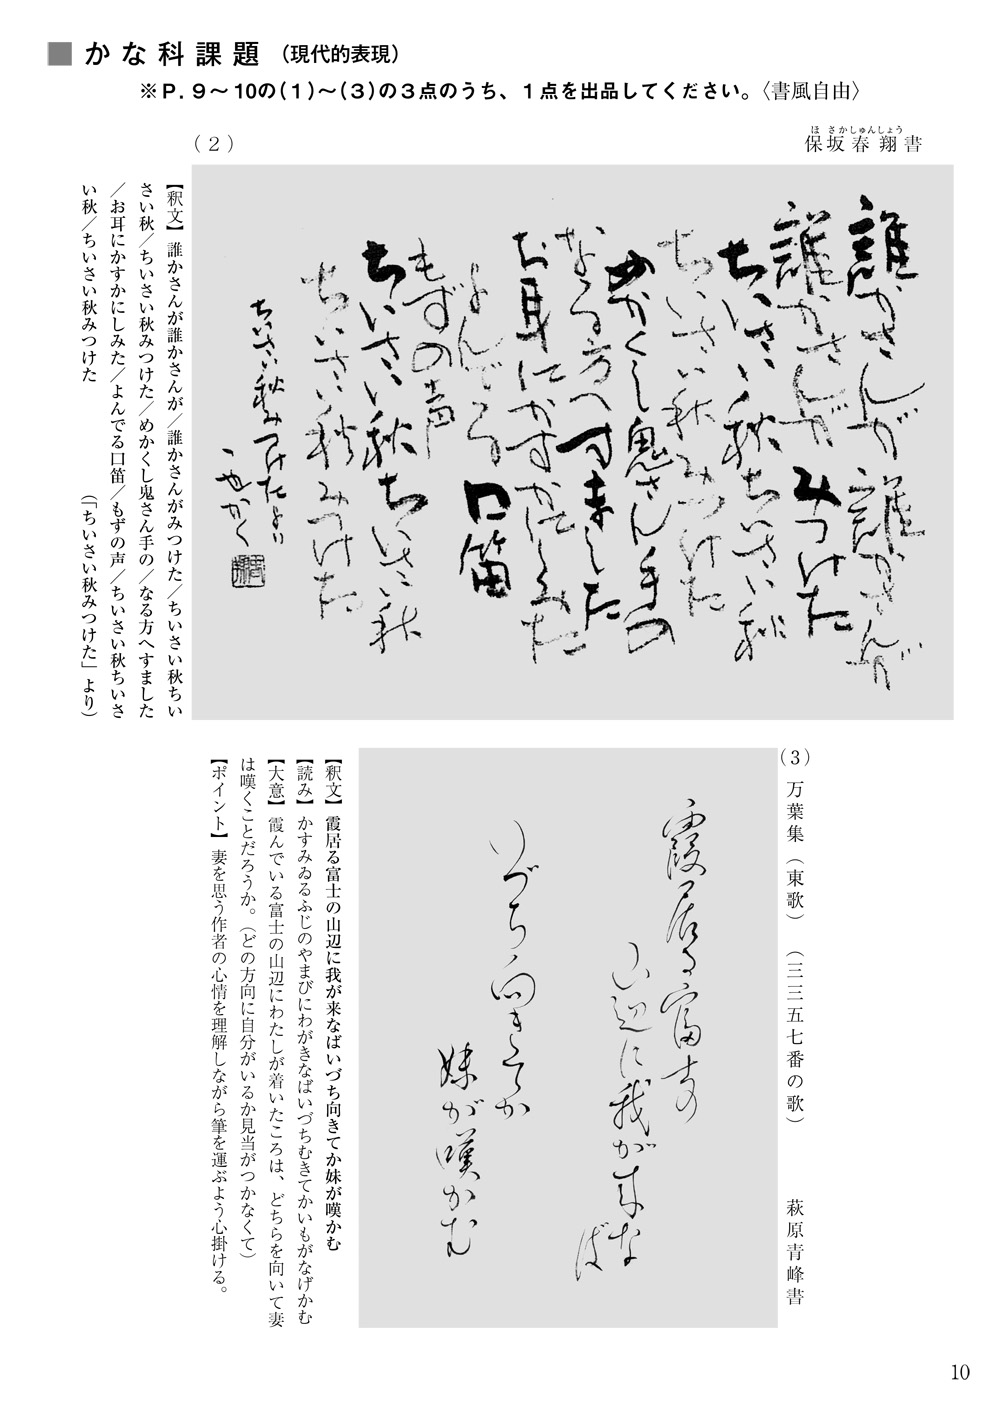 ■かな科課題（現代的表現）
※P. 9～10の(1)～(3)の3点のうち、1点を出品してください。〈書風自由〉
(2)
ほさかしゅんしょう
保坂春翔書
誰かさんが誰かさんが
誰かさんがみつけた
ちいさい秋ちいさい秋
ちいさい秋みつけた
めかくし鬼さん手の
なる方へすました
お耳にかすかにしみた
よんでる口笛
もずの声
ちいさい秋ちいさい秋
ちいさい秋みつけた
ちいさい秋みつけたより
【釈文】誰かさんが誰かさんが／誰かさんがみつけた／ちいさい秋ちい
さい秋／ちいさい秋みつけた／めかくし鬼さん手の／なる方へすました
／お耳にかすかにしみた／よんでる口笛／もずの声／ちいさい秋ちいさ
い秋／ちいさい秋みつけた　（「ちいさい秋みつけた」より）
(3)　万葉集（東歌）（三三五七番の歌）　萩原青峰書
霞居る富士の
山辺に我が来な
ば
いづち向きてか
妹が嘆かむ
【釈文】霞居る富士の山辺に我が来なばいづち向きてか妹が嘆かむ
【読み】かすみゐるふじのやまびにわがきなばいづちむきてかいもがなげかむ
【大意】霞んでいる富士の山辺にわたしが着いたころは、どちらを向いて妻
は嘆くことだろうか。（どの方向に自分がいるか見当がつかなくて）
【ポイント】妻を思う作者の心情を理解しながら筆を運ぶよう心掛ける。
10